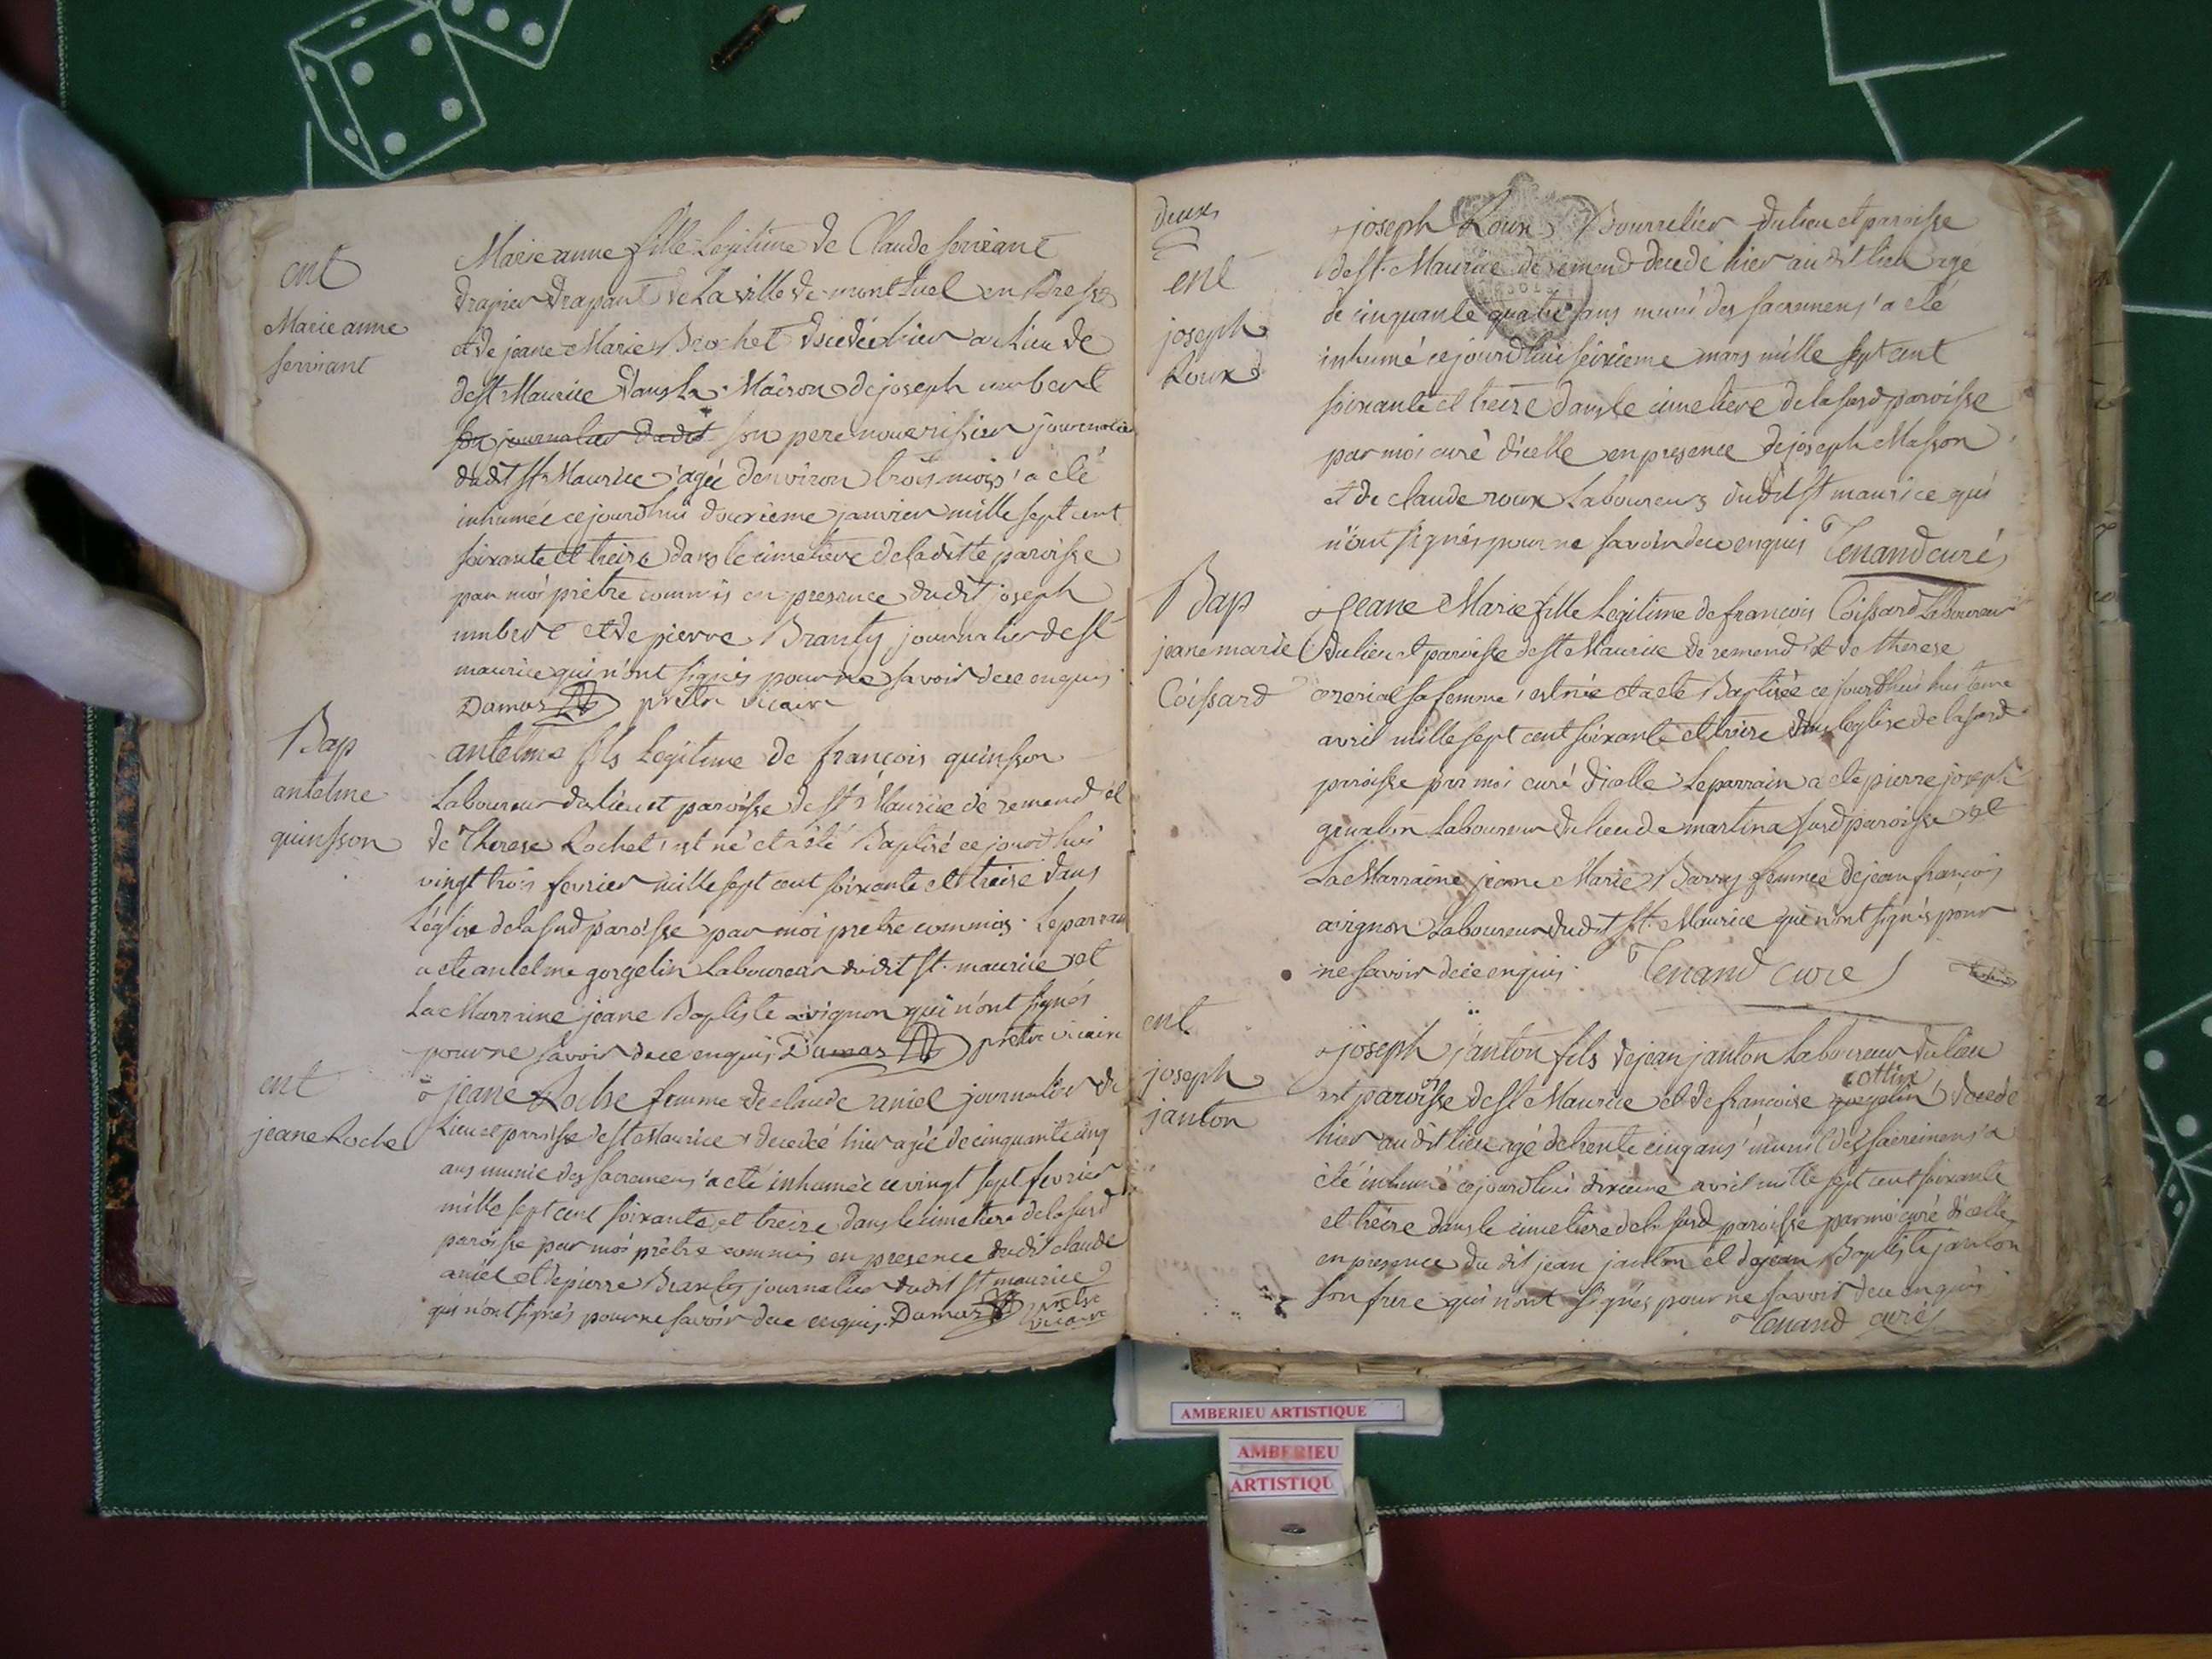 ent
Marie anne
serviant
Marie anne fille legitime de Claude serviant
drapier drapant de la ville de montluel en Bresse
et de jeane Marie Brochet decedée hier au lieu de
de st Maurice dans la Maison de joseph umbert
son journalier dudit son pere nourrissier journalier
dudit st Maurice agée d'environ trois mois a été
inhumée cejourdhui douzieme janvier mille sept cent
soixante et treize dans le cimetiere de la ditte paroisse
par moi prêtre commis en presence dudit joseph
umbert et de pierre Branty journalier de st
maurice qui n'ont signés pour ne savoir de ce enquis
Damas prêtre vicaire
Bap
antelme
quinsson
antelme fils legitime de françois quinsson
Laboureur du lieu et paroisse de st Maurice de remend et
de Therese Rochet est né et a été Baptisé ce jourdhui
vingt trois fevrier mille sept cent soixante et treize dans
l'église de la susd paroisse par moi pretre commis. Le parrain
a ete antelme gorgelin Laboureur dudit st. maurice et
La Marraine jeane Baptiste avignon qui n'ont signés
pour ne savoir de ce enquis. Damas prêtre vicaire
ent
jeane Roche
jeane Roche femme de claude aniel journalier du
Lieu et paroisse de st Maurice decedée hier agée de cinquante cinq
ans munie des sacremens a ete inhumée ce vingt sept fevrier
mille sept cent soixante et treize dans le cimetiere de la susd
paroisse par moi prêtre commis en presence dudit claude
aniel et de pierre Branty journalier dudit st maurice
qui n'ont signés pour ne savoir de ce enquis. Damas prêtre
vicaire
deux
ent
joseph
Roux
joseph Roux Bourrelier du lieu et paroisse
de st. Maurice de remend decedé hier au dit lieu agé
de cinquante quatre ans muni des sacremens a eté
inhumé cejourdhui seizieme mars mille sept cent
soixante et treize dans le cimetiere de la susd paroisse
par moi curé dicelle en presence de joseph Masson
et de claude roux Laboureurs dudit st maurice qui
n'ont signés pour ne savoir de ce enquis Tenand curé
Bap
jeane marie
Coissard
jeane Marie fille Legitime de françois Coissard Laboureur
du lieu et paroisse de st Maurice de remend et de therese
sa femme est née et a eté Baptisée ce jourdhui huitieme
avril mille sept cent soixante et treize dans leglise de la susd
paroisse par moi curé dicelle Le parrain a eté pierre joseph
Laboureur du lieu de martina susd paroisse et
La Marraine jeane Marie Barry femme de jean françois
avignon Laboureur dudit st. Maurice qui n'ont signés pour
ne savoir de ce enquis. Tenand curé
ent
joseph
janton
joseph janton fils de jean janton Laboureur du lieu
cottin
et paroisse de st Maurice et de francoise decedé
hier au dit lieu agé de trente cinq ans muni des sacremens a
été inhumé cejourdhui dixieme avril mille sept cent soixante
et treize dans le cimetiere de la susd paroisse par moi curé dicelle
en presence du dit jean janton et de jean Baptiste janton
son frere qui n'ont signés pour ne savoir de ce enquis
Tenand curé
AMBERIEU ARTISTIQUE
AMBERIEU
ARTISTIQU